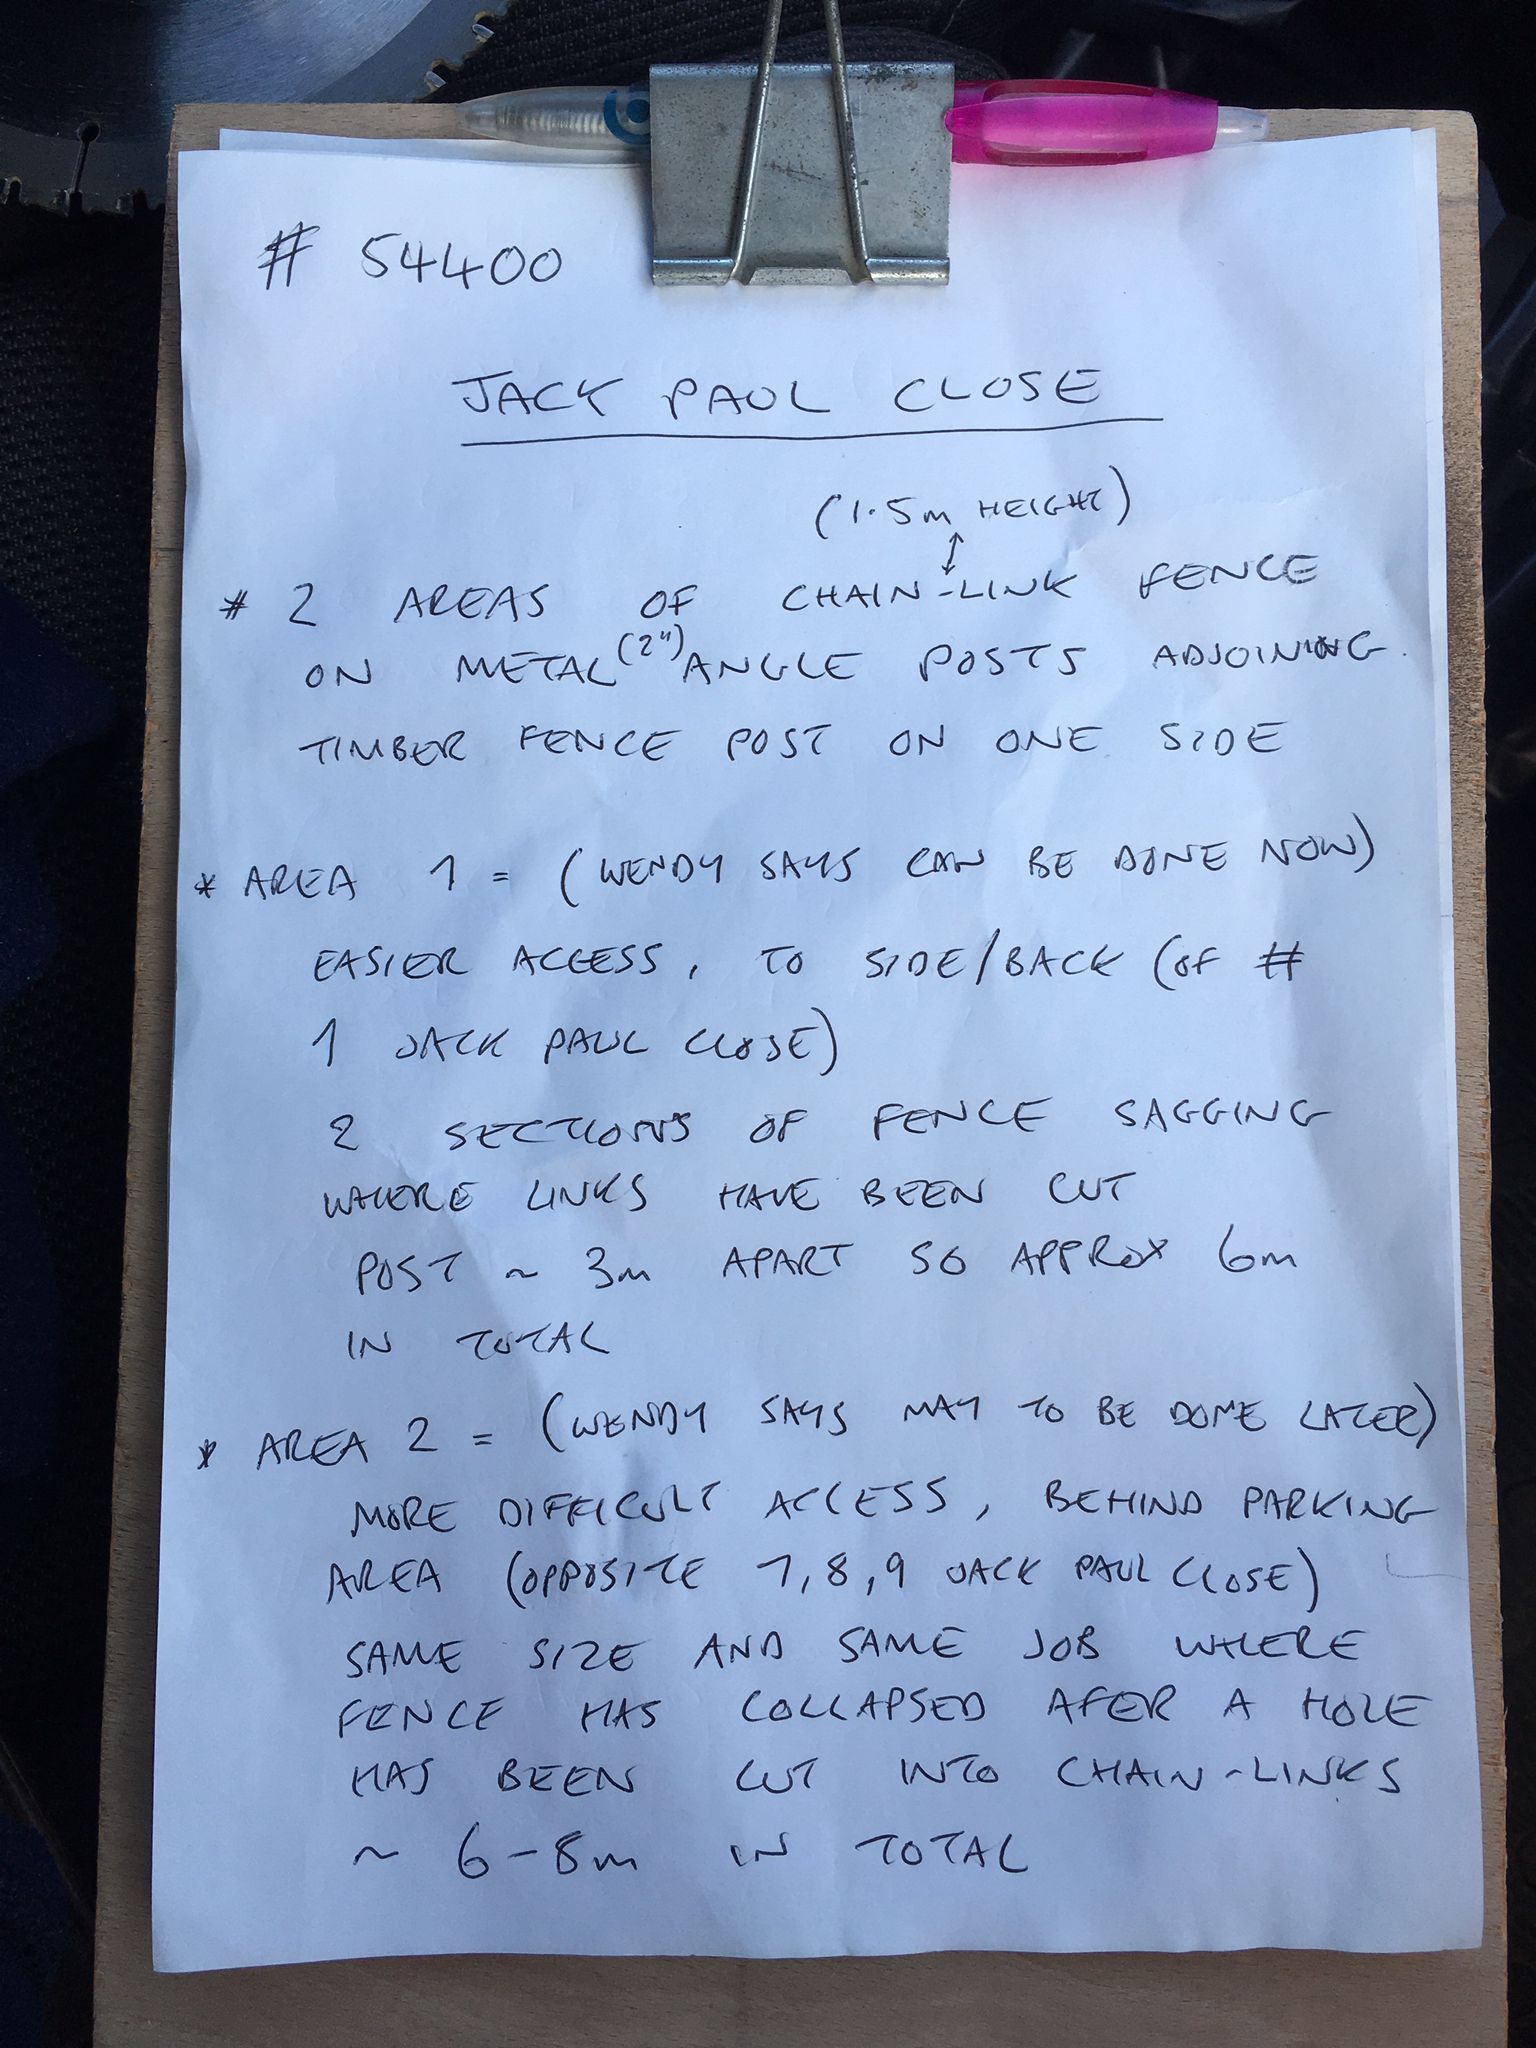 # 54400
JACK PAUL CLOSE
(1.5m HEIGHT)
* 2 AREAS OF CHAIN-LINK FENCE
ON METAL (2") ANGLE POSTS ADJOINING
TIMBER FENCE POST ON ONE SIDE
* AREA 1 = (WENDY SAYS CAN BE DONE NOW)
EASIER ACCESS, TO SIDE/BACK (OF #
1 JACK PAUL CLOSE)
2 SECTIONS OF FENCE SAGGING
WHERE LINKS HAVE BEEN CUT
POST ~ 3m APART SO APPROX 6m
IN TOTAL
* AREA 2 = (WENDY SAYS MAY TO BE DONE LATER)
MORE DIFFICULT ACCESS, BEHIND PARKING
AREA (OPPOSITE 7,8,9 JACK PAUL CLOSE)
SAME SIZE AND SAME JOB WHERE
FENCE HAS COLLAPSED AFER A HOLE
HAS BEEN CUT INTO CHAIN-LINKS
~ 6-8m IN TOTAL